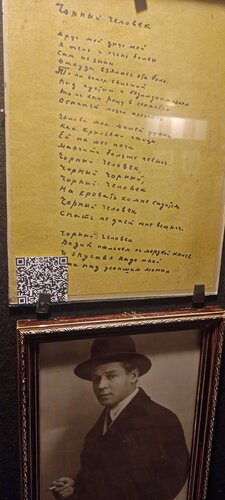 Чорный человек
Друг мой друг мой
Я очень и очень болен
Сам не знаю
Откуда взялась эта боль
То ли ветер свистит
Над пустым и безлюдным полем
То ль как рощу в сентябрь
Осыпает мозги алкоголь
Голова моя машет ушами
Как крыльями птица
Ей на шее ноги
Маячить больше невмочь
Чорный человек,
Чорный чорный,
Чорный человек
На кровать ко мне садится
Чорный человек
Спать не дает мне всю ночь.
Чорный человек
Водит пальцем по мерзкой книге
И гнусавя надо мной
Как над усопшим монах